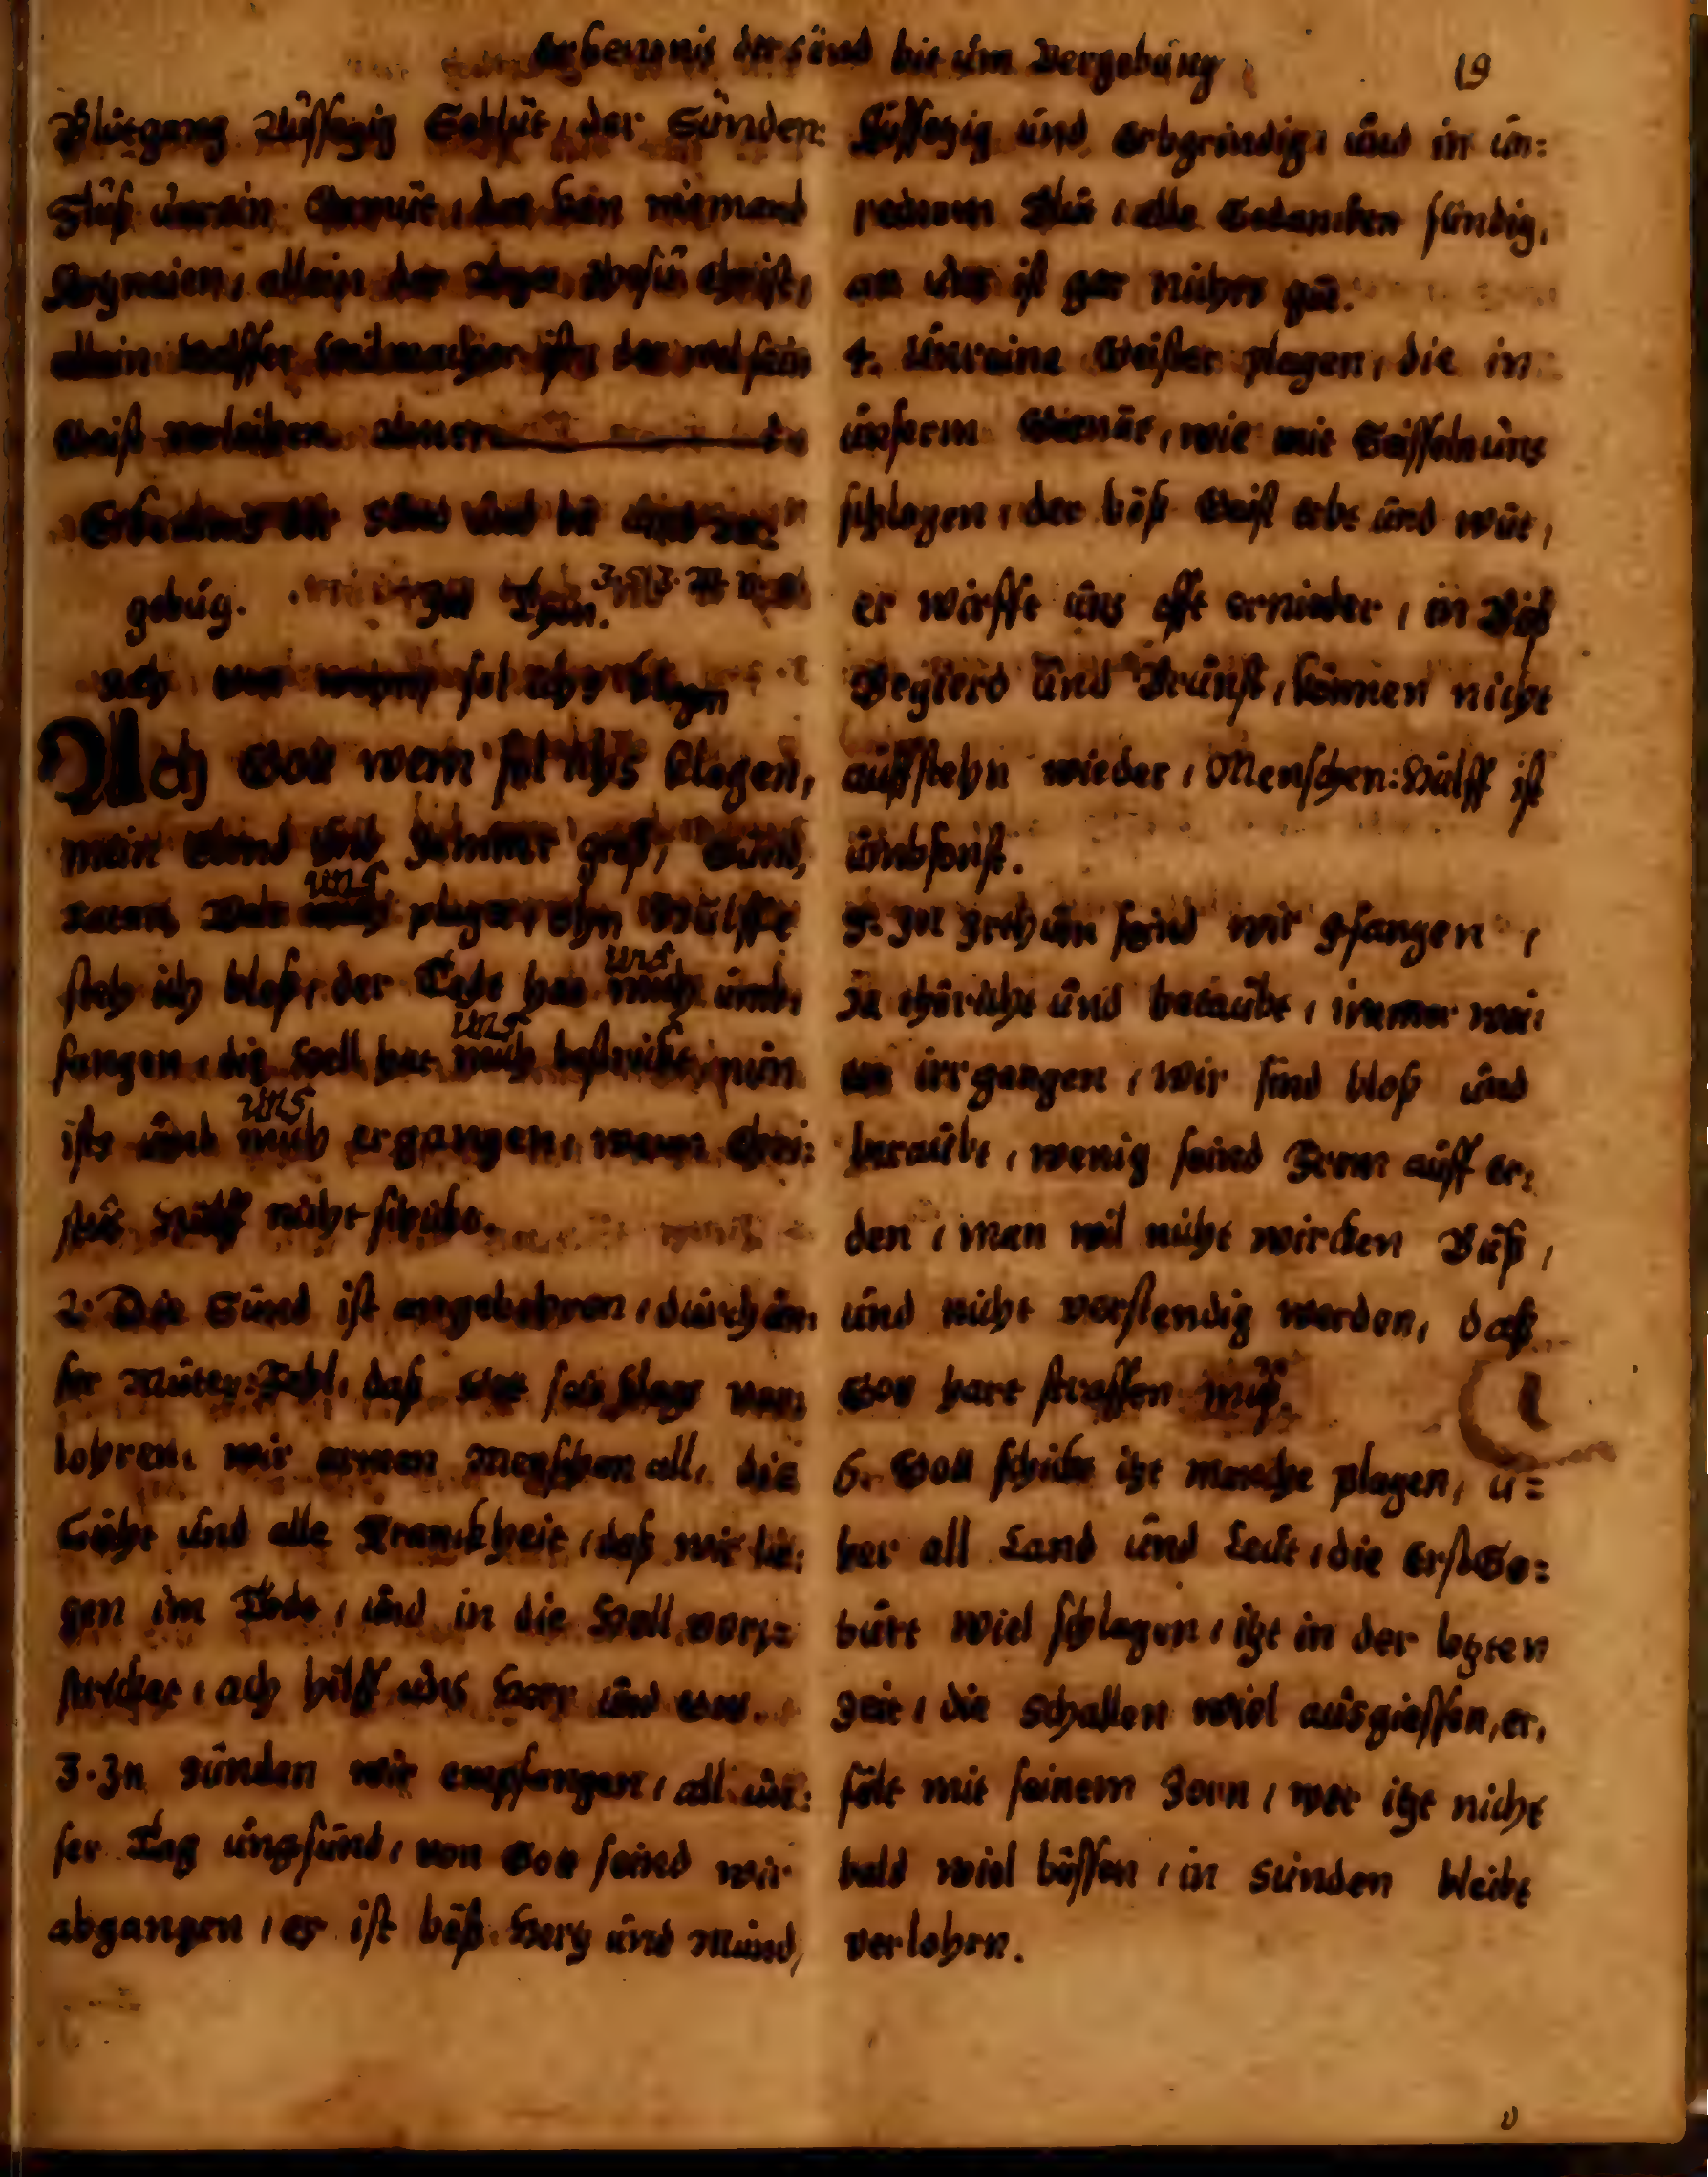 Erkentnis der sünd bit üm Vergebüng
19
Blütgang Aüssetzig Geblüt, der Sünden:
Flüß ünrein Gemüt, den kan niemand
Artzneien, allein der Jesü Christ,
allein ist, der wol sein
Geist verleihen
Erkentnis der Sünd ünd bit ver:
gebüg. Im Thon.
Ach wem sol ichs klagen
Ach Gott wem sol ichs klagen,
mein Elend ünd Jammer groß, Sünd,
uns
Satan, Welt mich plagen, ohn Hülffe
uns
steh ich bloß, der Todt hat mich ümb,
uns
fangen, die Hell hat mich bestrickt, nün
uns
ists ümb mich ergangen, wenn Chri:
stüs Hülff nicht schickt.
2. Die Sünd ist angebohren, dürch ün,
ser Müter Fehl, daß wir ver,
lohren, wir armen Menschen all, die
Gicht ünd alle Kranckheit, daß wir lie:
gen im Tode, ünd in die Hell ver:
stricket, ach hilff üns Herr ünd Gott.
3. In Sünden wir empfangen, all ün:
ser Tag üngsünd, von Gott seind wir
abgangen, es ist böß Hertz ünd Münd,
Aüssetzig ünd Erbgrindig, ünd in ün:
reinem Blüt, alle Gedancken sündig,
an üns ist gar nichts güt.
4. Ünreine Geister plagen, die in
ünserm Gemüt, wie mit Geisseln üns
schlagen, der böß Geist tobt ünd wüt,
er wirfft üns offt ernieder, in Böß
Begierd ünd Brünst, können nicht
aüffstehn wieder, Menschen: Hülff ist
ümbsonst.
5. In Irthüm seind wir gfangen,
Ja thöricht ünd betaübt, immer wei,
ter irrgangen, wir sind bloß ünd
beraübt, wenig seind From aüff er:
den, man wil nicht wircken Büß,
ünd nicht verstendig werden, daß
Gott hart straffen müß.
6. Gott schickt itzt manche plagen, ü=
ber all Land ünd Leüt, die Erst Ge=
bürt wiel schlagen, itzt in der letzten
Zeit, die Schallen wiel aüsgiessen, er,
fült mit seinem Zorn, wer itzt nicht
bald wiel büssen, in Sünden bleibt
verlohrn.